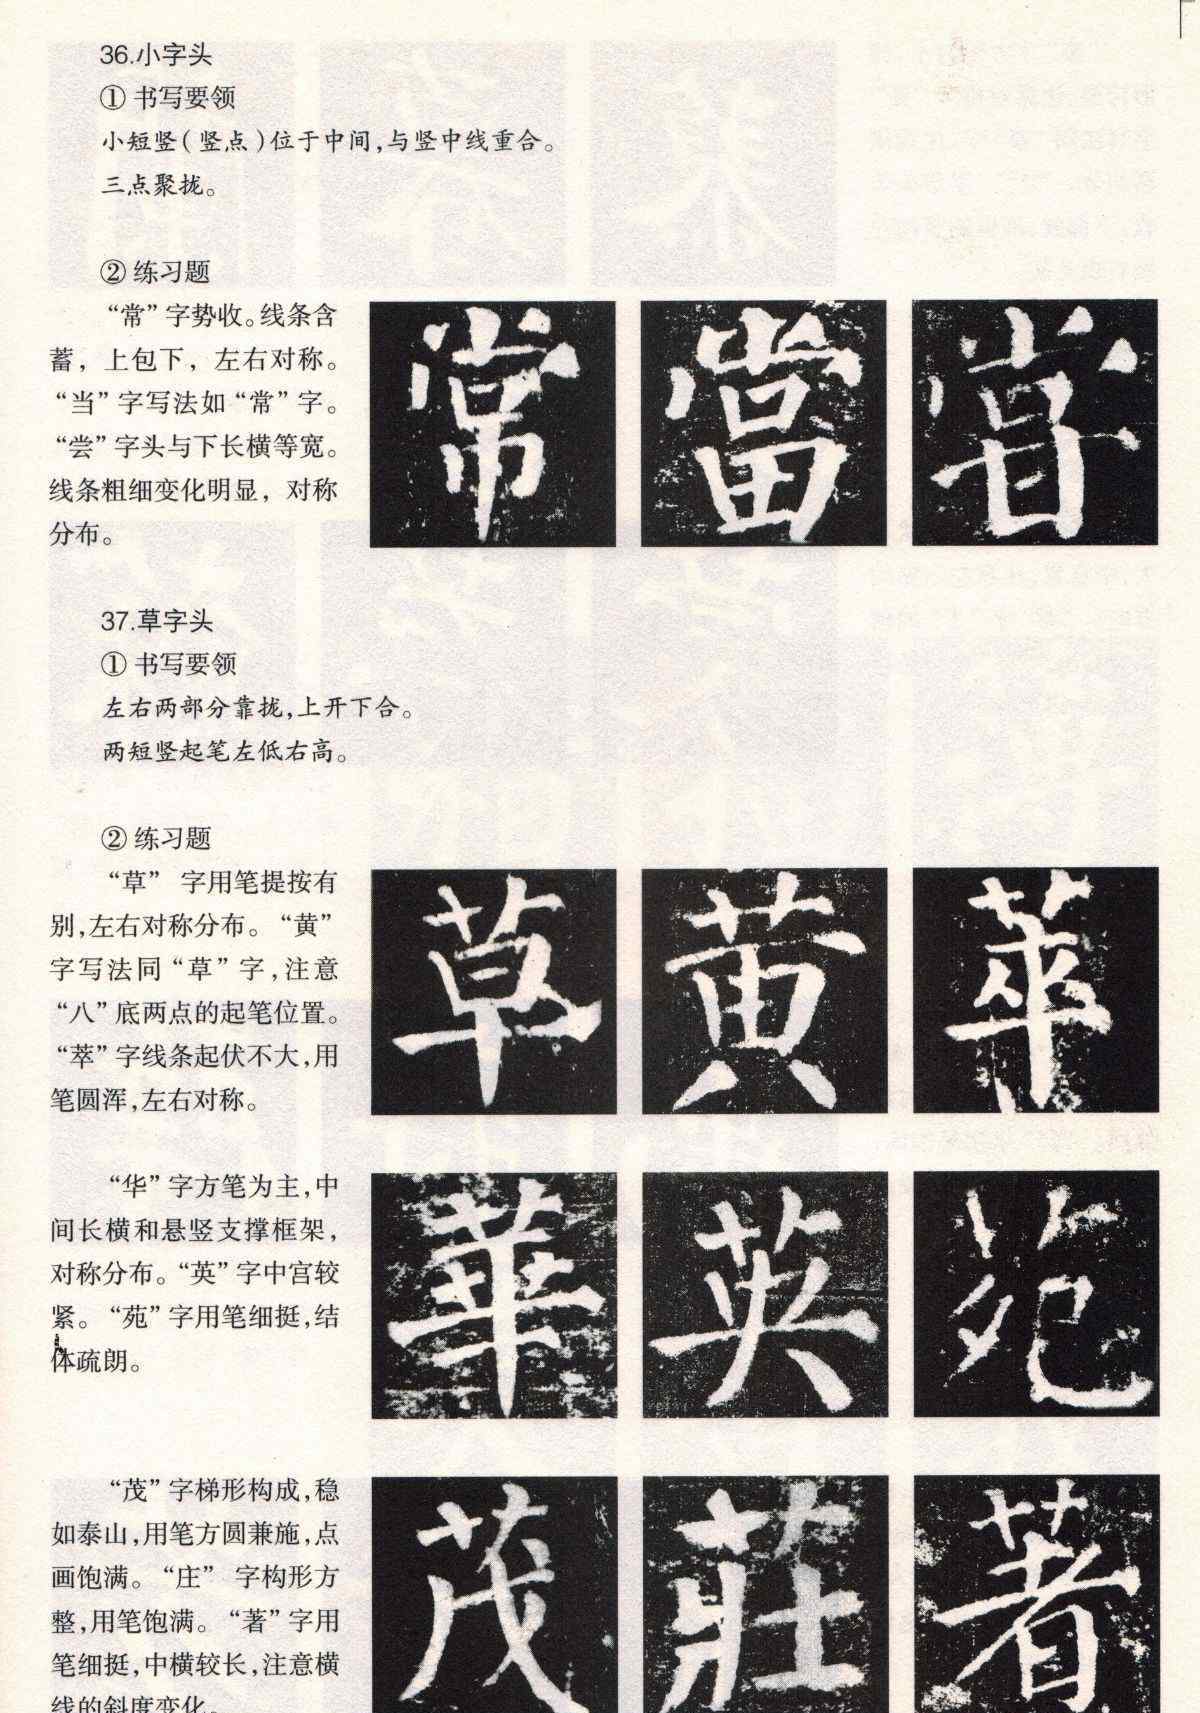 36.小字头
① 书写要领
小短竖(竖点)位于中间,与竖中线重合。
三点聚拢。
② 练习题
“常”字势收。线条含
蓄，上包下，左右对称。
“当”字写法如“常”字。
“尝”字头与下长横等宽。
线条粗细变化明显，对称
分布。
常 當 甞
37.草字头
① 书写要领
左右两部分靠拢,上开下合。
两短竖起笔左低右高。
② 练习题
“草” 字用笔提按有
别,左右对称分布。“黄”
字写法同“草”字,注意
“八”底两点的起笔位置。
“萃”字线条起伏不大,用
笔圆浑,左右对称。
草 黄 萃
“华”字方笔为主,中
间长横和悬竖支撑框架,
对称分布。“英”字中宫较
紧。“苑”字用笔细挺,结
体疏朗。
華 英 苑
“茂”字梯形构成,稳
如泰山,用笔方圆兼施,点
画饱满。“庄” 字构形方
整,用笔饱满。“著”字用
笔细挺,中横较长,注意横
线的斜度变化。
茂 莊 著